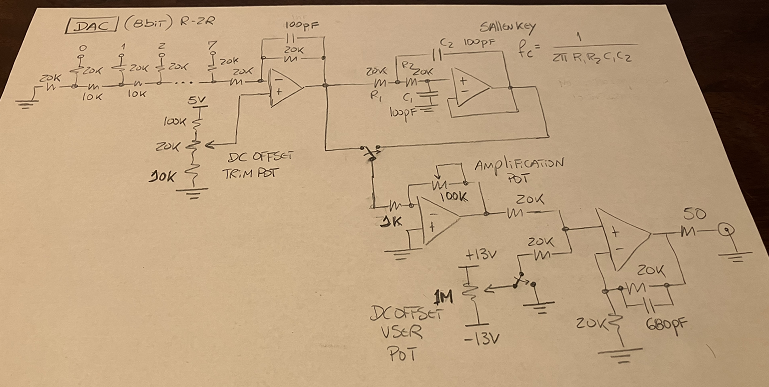 DAC (8bit) R-2R
0 1 2 7
20K 20K 20K 20K 20K 20K
10K 10K
100pF
20K
+
-
5V
100K
20K
10K
DC OFFSET
TRIM POT
SALLEN KEY
C2 100pF
20K R2 20K
R1 C1
100pF
+
-
fc = 1
2π R1R2C1C2
AMPLIFICATION
POT
100K
1K
-
+
20K
20K
+13V
1M
-13V
DC OFFSET
USER
POT
+
-
50
20K
680pF
20K